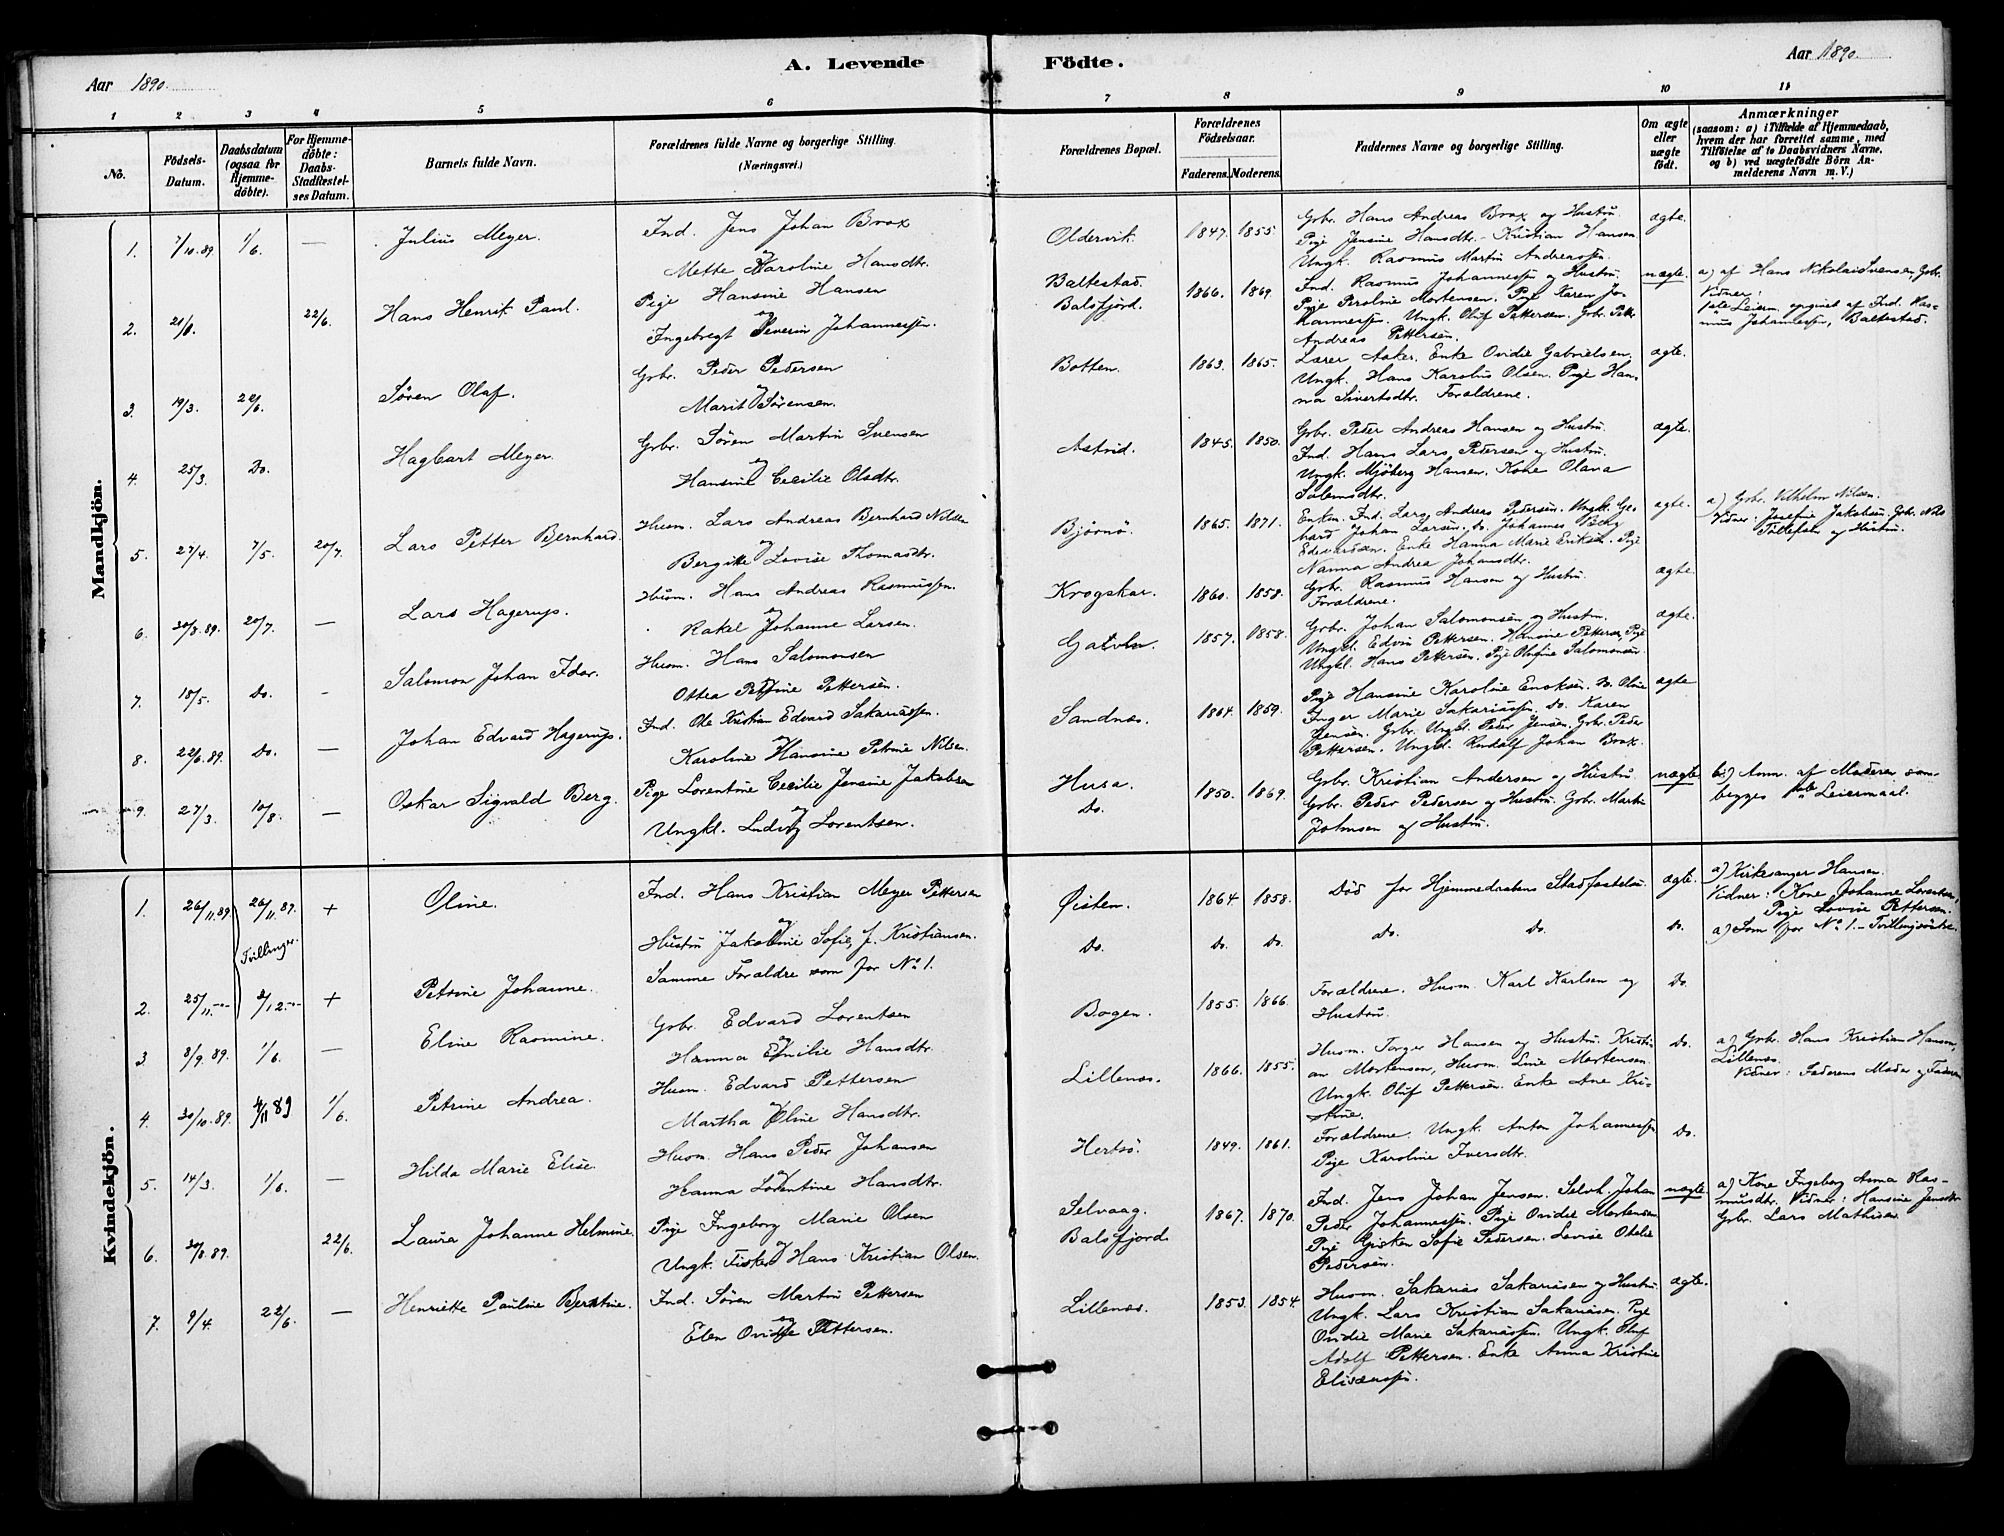 Aar 1890.
A. Levende Födte.
Aar 1890.
1 2 3 4 5 6 7 8 9 10 11
No.
Födsels-Datum.
Daabsdatum (ogsaa for Hjemme-döbte).
For Hjemme-döbte: Daabs-Stadfæstel-ses Datum.
Barnets fulde Navn.
Forældrenes fulde Navne og borgerlige Stilling. (Næringsvei.)
Forældrenes Bopæl.
Forældrenes Födselsaar.
Faderens. Moderens.
Faddernes Navne og borgerlige Stilling.
Om ægte eller uægte födt.
Anmærkninger
(saasom: a) i Tilfælde af Hjemmedaab,
hvem der har forrettet samme, med
Tilföielse af to Daabsvidners Navne,
og b) ved uægtefödte Börn An-
melderens Navn m. V.)
Mandkjön.
1. 7/10.89. 1/6. — Julius Meyer.
Ind. Jens Johan Brox
og
Mette Karoline Hansdtr.
Oldervik. 1847. 1855.
Gbr. Hans Andreas Brox og Hustru.
Pige Jensine Hansdtr. Kristian Hansen
Ungk. Rasmus Martin Andreassen.
ægte.
2. 21/8. 22/6. Hans Henrik Paul.
Pige Hansine Hansen
og
Ingebregt Severin Johannessen.
Baltestad.
Balsfjord. 1866. 1869.
Ind. Rasmus Johannessen og Hustru.
Pige Peroline Mortensen. Pige Karen Jo-
hannessen. Ungk. Oluf Pettersen. Gbr. Petter
Andreas Pettersen.
uægte.
a) af Hans Nikolai Svensen, Gbr.
Vidner:
Leierm. opgivet af Ind. Ras-
mus Johannessen, Baltestad.
3. 19/3. 22/6. Sören Olaf.
Gbr. Peder Pedersen
og
Marit Sørensen.
Botten. 1863. 1865.
Lærer Aaker. Enke Ovidie Gabrielsen.
Ungk. Hans Karolus Olsen. Pige Han-
na Sivertsdtr. Forældrene.
ægte.
4. 25/3. Do. Hagbart Meyer.
Gbr. Sören Martin Svensen
og
Hansine Cecilie Olsdtr.
Astrid. 1845. 1850.
Gbr. Peder Andreas Hansen og Hustru.
Ind. Hans Lars Pedersen og Hustru.
Ungk. Mjöberg Hansen. Kone Olava
Salomsdtr.
ægte.
5. 27/4. 7/5. 20/7. Lars Petter Bernhard.
Husm. Lars Andreas Bernhard Nilsen
og
Bergitte Lovise Thomasdtr.
Bjørnø. 1865. 1871.
Enkem. Ind. Lars Andreas Pedersen. Ungk. Ge-
hard Johan Larsen. do. Johannes Berg
Edevardsen. Enke Hanna Marie Eriksen. Pige
Nanna Andrea Johansdtr.
ægte.
a) Gbr. Vilhelm Nilsen.
Vidner: Josefine Jakobsen. Gbr. Nils
Tollefsen og Hustru.
6. 30/8.89. 20/7. — Lars Hagerup.
Husm. Hans Andreas Rasmussen.
og
Rakel Johanne Larsen.
Krogskar. 1860. 1858.
Gbr. Rasmus Hansen og Hustru.
Forældrene.
ægte.
7. 18/5. Do. - Salomon Johan Idar.
Husm. Hans Salomonsen
og
Ottea Petrine Pettersen.
1857. 1858.
Gbr. Johan Salomonsen og Hustru.
Ungkl. Edvin Pettersen. Hansine Pettersen, Pige
Ungkl. Hans Pettersen. Pige Olufine Salomonsen.
ægte.
8. 22/6.89. Do. — Johan Edvard Hagerup.
Ind. Ole Kristian Edvard Sakariassen.
og
Karoline Hansine Petrine Nilsen.
Sandnæs. 1864. 1859.
Pige Hansine Karoline Enoksen. Do. Oline
Inger Marie Sakariassen. Do. Karen
Jensen. Gbr. Ungkl. Peder Jensen. Gbr. Peder
Pettersen. Ungkl. Rudolf Johan Brox.
ægte
9. 27/3. 10/8. — Oskar Sigvald Berg.
Pige Lorentine Cecilie Jensine Jakobsen
og
Ungkl. Ludvig Lorentsen.
Husa.
Do. 1850. 1869.
Gbr. Kristian Andersen og Hustru.
Gbr. Peder Pedersen og Hustru. Gbr. Martin
Johnsen og Hustru.
uægte
b.) Anm. af Moderen som
begges Leiermaal.
Kvindekjön.
1. 26/11.89. 26/11.89. + Oline.
Tvillinger.
Ind. Hans Kristian Meyer Pettersen
og
Hustru Jakobine Sofie, f. Kristiansen.
Øisten. 1864. 1858.
Död før Hjemmedaabens Stadfæstelse.
ægte.
a) Kirkesanger Hansen.
Vidner: Kone Johanne Lorentsen,
Pige Lovise Pettersen.
2. 25/11.-"- 2/12.-"- + Petrine Johanne.
Samme Forældre som for No 1.
Do. Do. Do. Do. Do. Do.
a) Som for No 1. - Tvillingsöstre.
3. 8/9.89. 1/6. — Eline Rasmine.
Gbr. Edvard Lorentsen
og
Hanna Emilie Hansdtr.
Bogen. 1855. 1866.
Forældrene. Husm. Karl Karlsen og
Hustru.
Do.
4. 30/10.89. 4/11 89 1/6. Petrine Andrea.
Husm. Edvard Pettersen
og
Martha Oline Hansdtr.
Lillenæs. 1866. 1855.
Husm. Torger Hansen og Hustru. Kristi-
an Mortensen, Husm. Line Mortensen.
Ungk. Oluf Pettersen. Enke Ane Kri-
stine.
Do.
a) Gbr. Hans Kristian Hansen,
Lillenæs.
Vidner: Faderens Moder og Faderen
5. 14/3. 1/6. — Hilda Marie Elise.
Husm. Hans Peder Johansen
og
Hanna Lorentine Hansdtr.
Hertsö. 1849. 1861.
Forældrene. Ungk. Anton Johannessen
Pige Karoline Iversdtr.
Do.
6. 30/8.89. 22/6. Laura Johanne Helmine.
Pige Ingeborg Marie Olsen
og
Ungk. Fisker Hans Kristian Olsen.
Selvaag.
Balsfjord. 1867. 1870.
Ind. Jens Johan Jensen. Selvh. Johan
Peder Johannessen. Pige Ovidie Mortensen
Pige Gjisken Sofie Pedersen. Lovise Otelie
Pedersen.
uægte
a) Kone Ingeborg Anna Ras-
musdtr. Vidner: Hansine Jensdtr
Gbr. Lars Mathisen
7. 9/4. 22/6. — Henriette Pauline Berntine.
Ind. Sören Martin Pettersen
og
Elen Ovidie Pettersen.
Lillenæs. 1853. 1854.
Husm. Sakarias Sakariasen og Hustru.
Ungk. Lars Kristian Sakariasen. Pige
Ovidie Marie Sakariassen. Ungk. Oluf
Adolf Pettersen. Enke Anna Kristine
Eliseussen.
ægte.